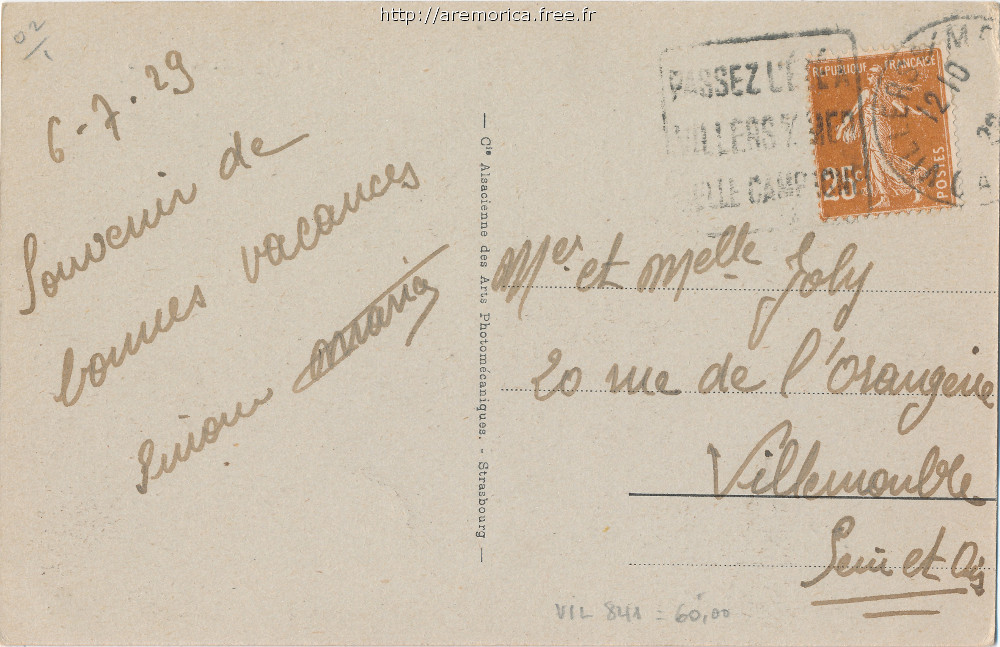 http://aremorica.free.fr
02
6-7-29
Souvenir de
bonnes vacances
Maria
— Cie Alsacienne des Arts Photomécaniques. - Strasbourg —
PASSEZ L'ÉTÉ A
VILLERS S/ MER
BELLE CAMPAGNE
REPUBLIQUE FRANCAISE
25c
POSTES
VILLERS S/ MER
12 10
Mer et Melle Joly
20 rue de l'Orangerie
Villemouble
Seine et Oise
VIL 841 = 60,00